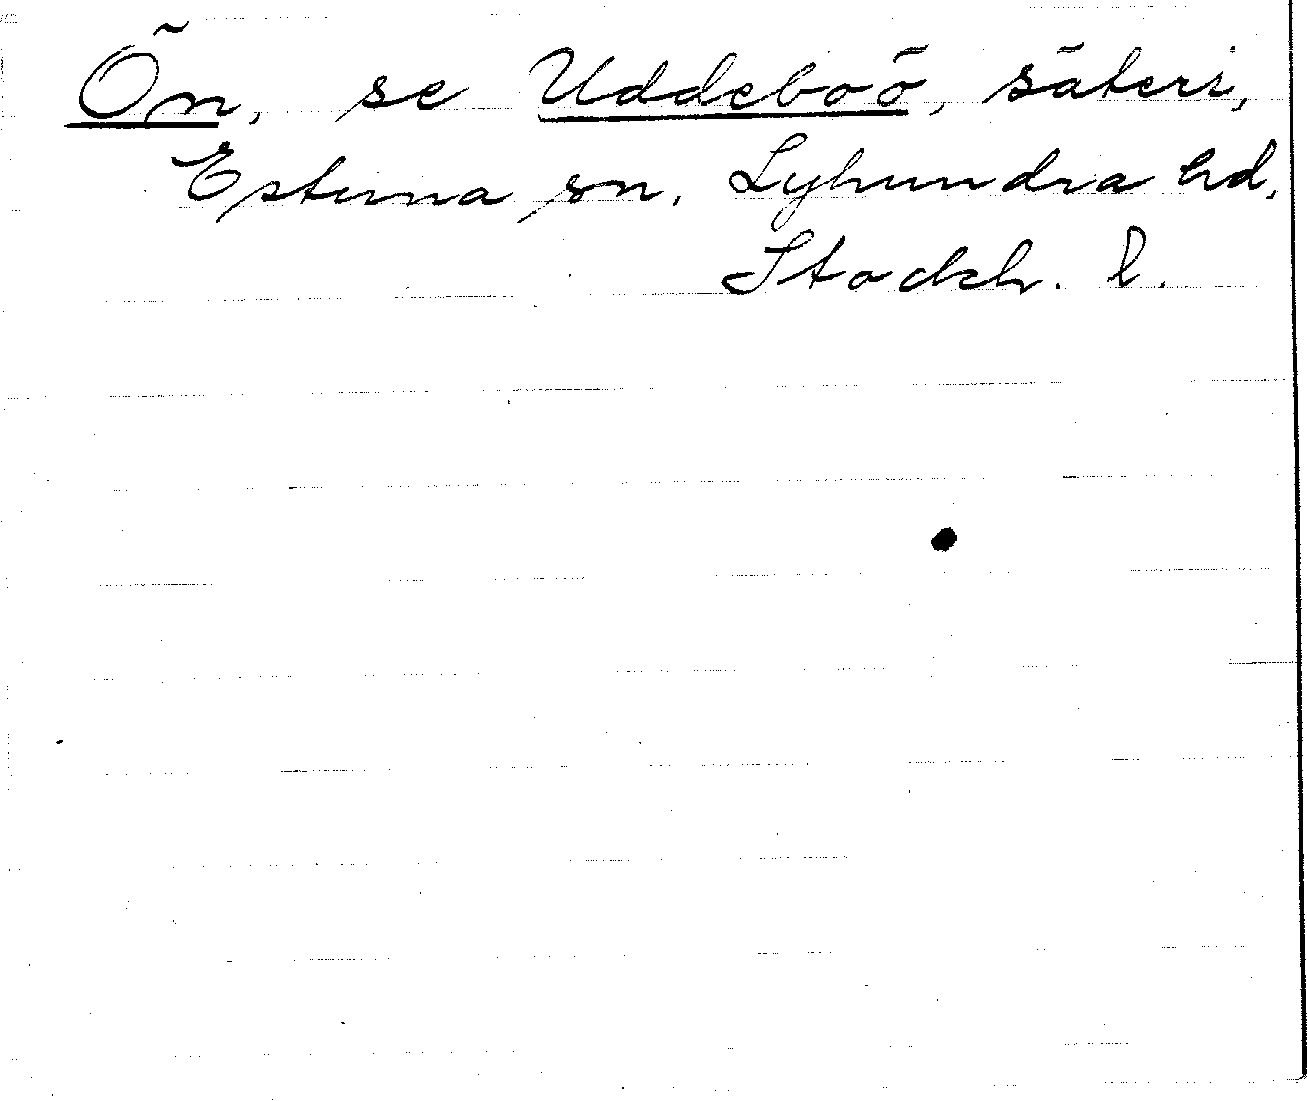 Ön, se Uddeboö, säteri,
Estuna sn, Lyhundra hd,
Stockh. l.